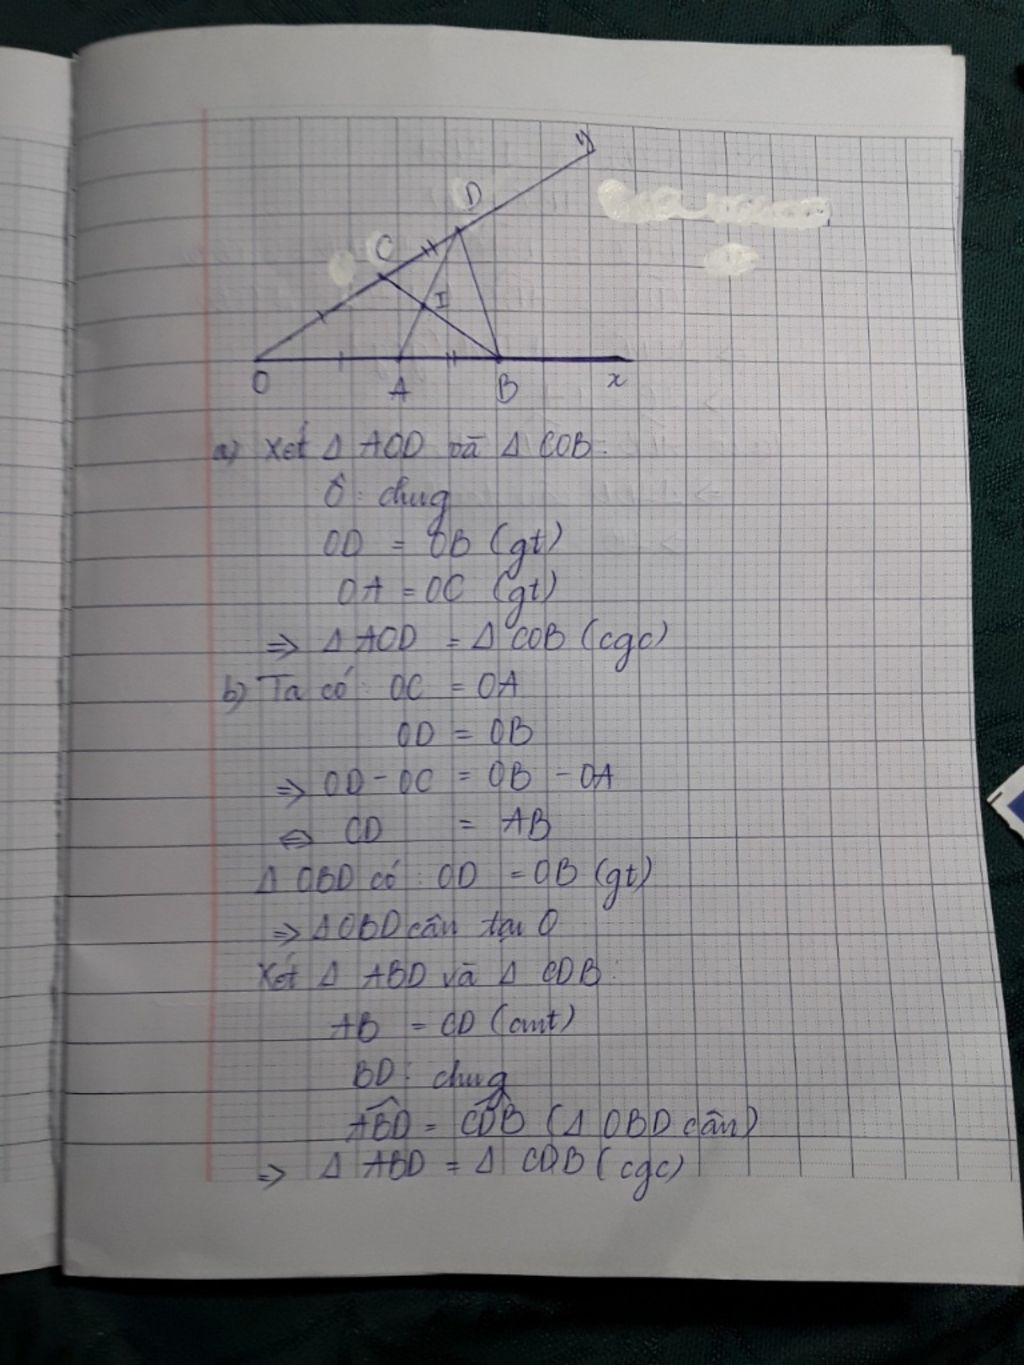 y
D
C
I
O
A
B
x
a) Xét Δ AOD và Δ COB:
Ô: chug
OD = OB (gt)
OA = OC (gt)
=> Δ AOD = Δ COB (cgc)
b) Ta có: OC = OA
OD = OB
=> OD - OC = OB - OA
<=> CD = AB
Δ OBD có: OD = OB (gt)
=> Δ OBD cân tại O
Xét Δ ABD và Δ CDB:
AB = CD (cmt)
BD: chug
\widehat{ABD} = \widehat{CDB} (Δ OBD cân)
=> Δ ABD = Δ CDB (cgc)